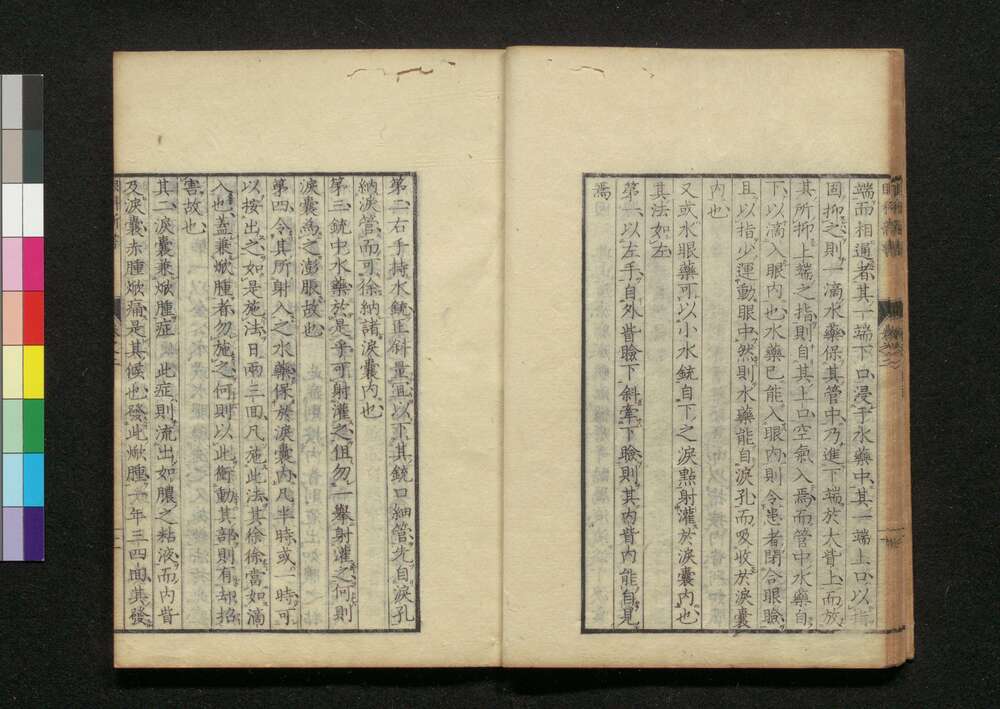 端而相通者其一端下口浸于水藥中其一端上口以指
固抑之則一滴水藥保其管中乃進下端於大眥上而放
其所抑上端之指則自其上口空氣入焉而管中水藥自
下以滴入眼內也水藥已能入眼內則令患者閉合眼瞼
且以指少運動眼中然則水藥能自淚孔而吸收於淚囊
內也
又或水眼藥可以小水銃自下之淚點射灌於淚囊內也
其法如左
第一以左手自外眥瞼下斜牽下瞼則其內眥內能自見
焉
第二右手持水銃正斜量宜以下其銃口細管先自淚孔
納淚管而可徐納諸淚囊內也
第三銃中水藥於是乎可射灌之但勿一擧射灌之何則
淚囊爲之澎脹故也
第四令其所射入之水藥保於淚囊內凡半時或一時可
以按出之如是施法日兩三回凡施此法其徐徐當如滴
入也蓋兼焮腫者勿施之何則以此衝動其部則有却招
害故也
其二淚囊兼焮腫症 此症則流出如膿之粘液而內眥
及淚囊赤腫焮痛是其候也發此焮腫一年三四回其發